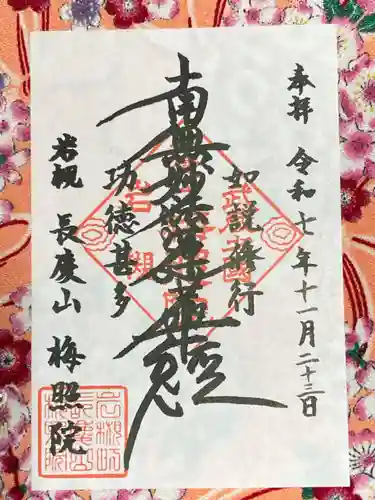 奉拝 令和七年十一月二十三日
如説修行
南無妙法蓮華経
功徳甚多
岩槻 長慶山 梅照院